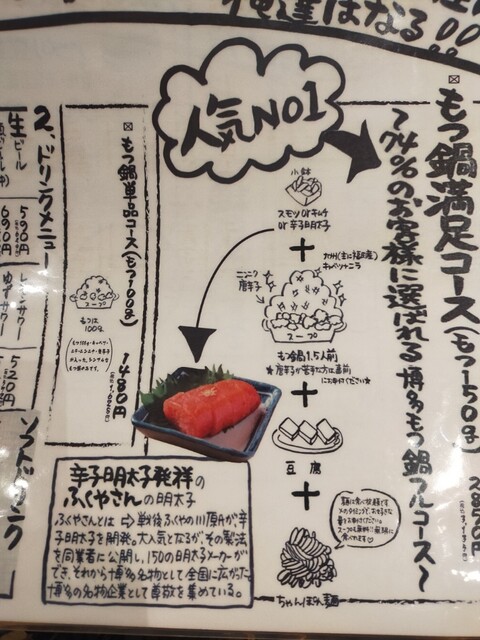 俺達はなる!!
もつ鍋満足コース(もつ150g)
〜74%のお客様に選ばれる博多もつ鍋フルコース〜
人気NO1
小鉢
スモツorキムチ
or辛子明太子
+
キャベツ+ニラ
ニンニク
唐辛子
スープ
もつ鍋1.5人前
+
豆腐
+
ちゃんぽん麺
もつ鍋単品コース(もつ100g)
スープ
もつは
100g
1480円
辛子明太子発祥の
ふくやさんの明太子
ふくやとは⇨戦後ふくやの川原が、辛
子明太子を開発。大人気となるが、その製法
を同業者に公開し、150の明太子メーカーが
でき、それから博多名物として全国に広がった。
博多の名物企業として尊敬を集めている。
2、ドリンクメニュー
生ビール
590円
690円
レモンサワー
ゆずサワー
520円
ソフトドリンク